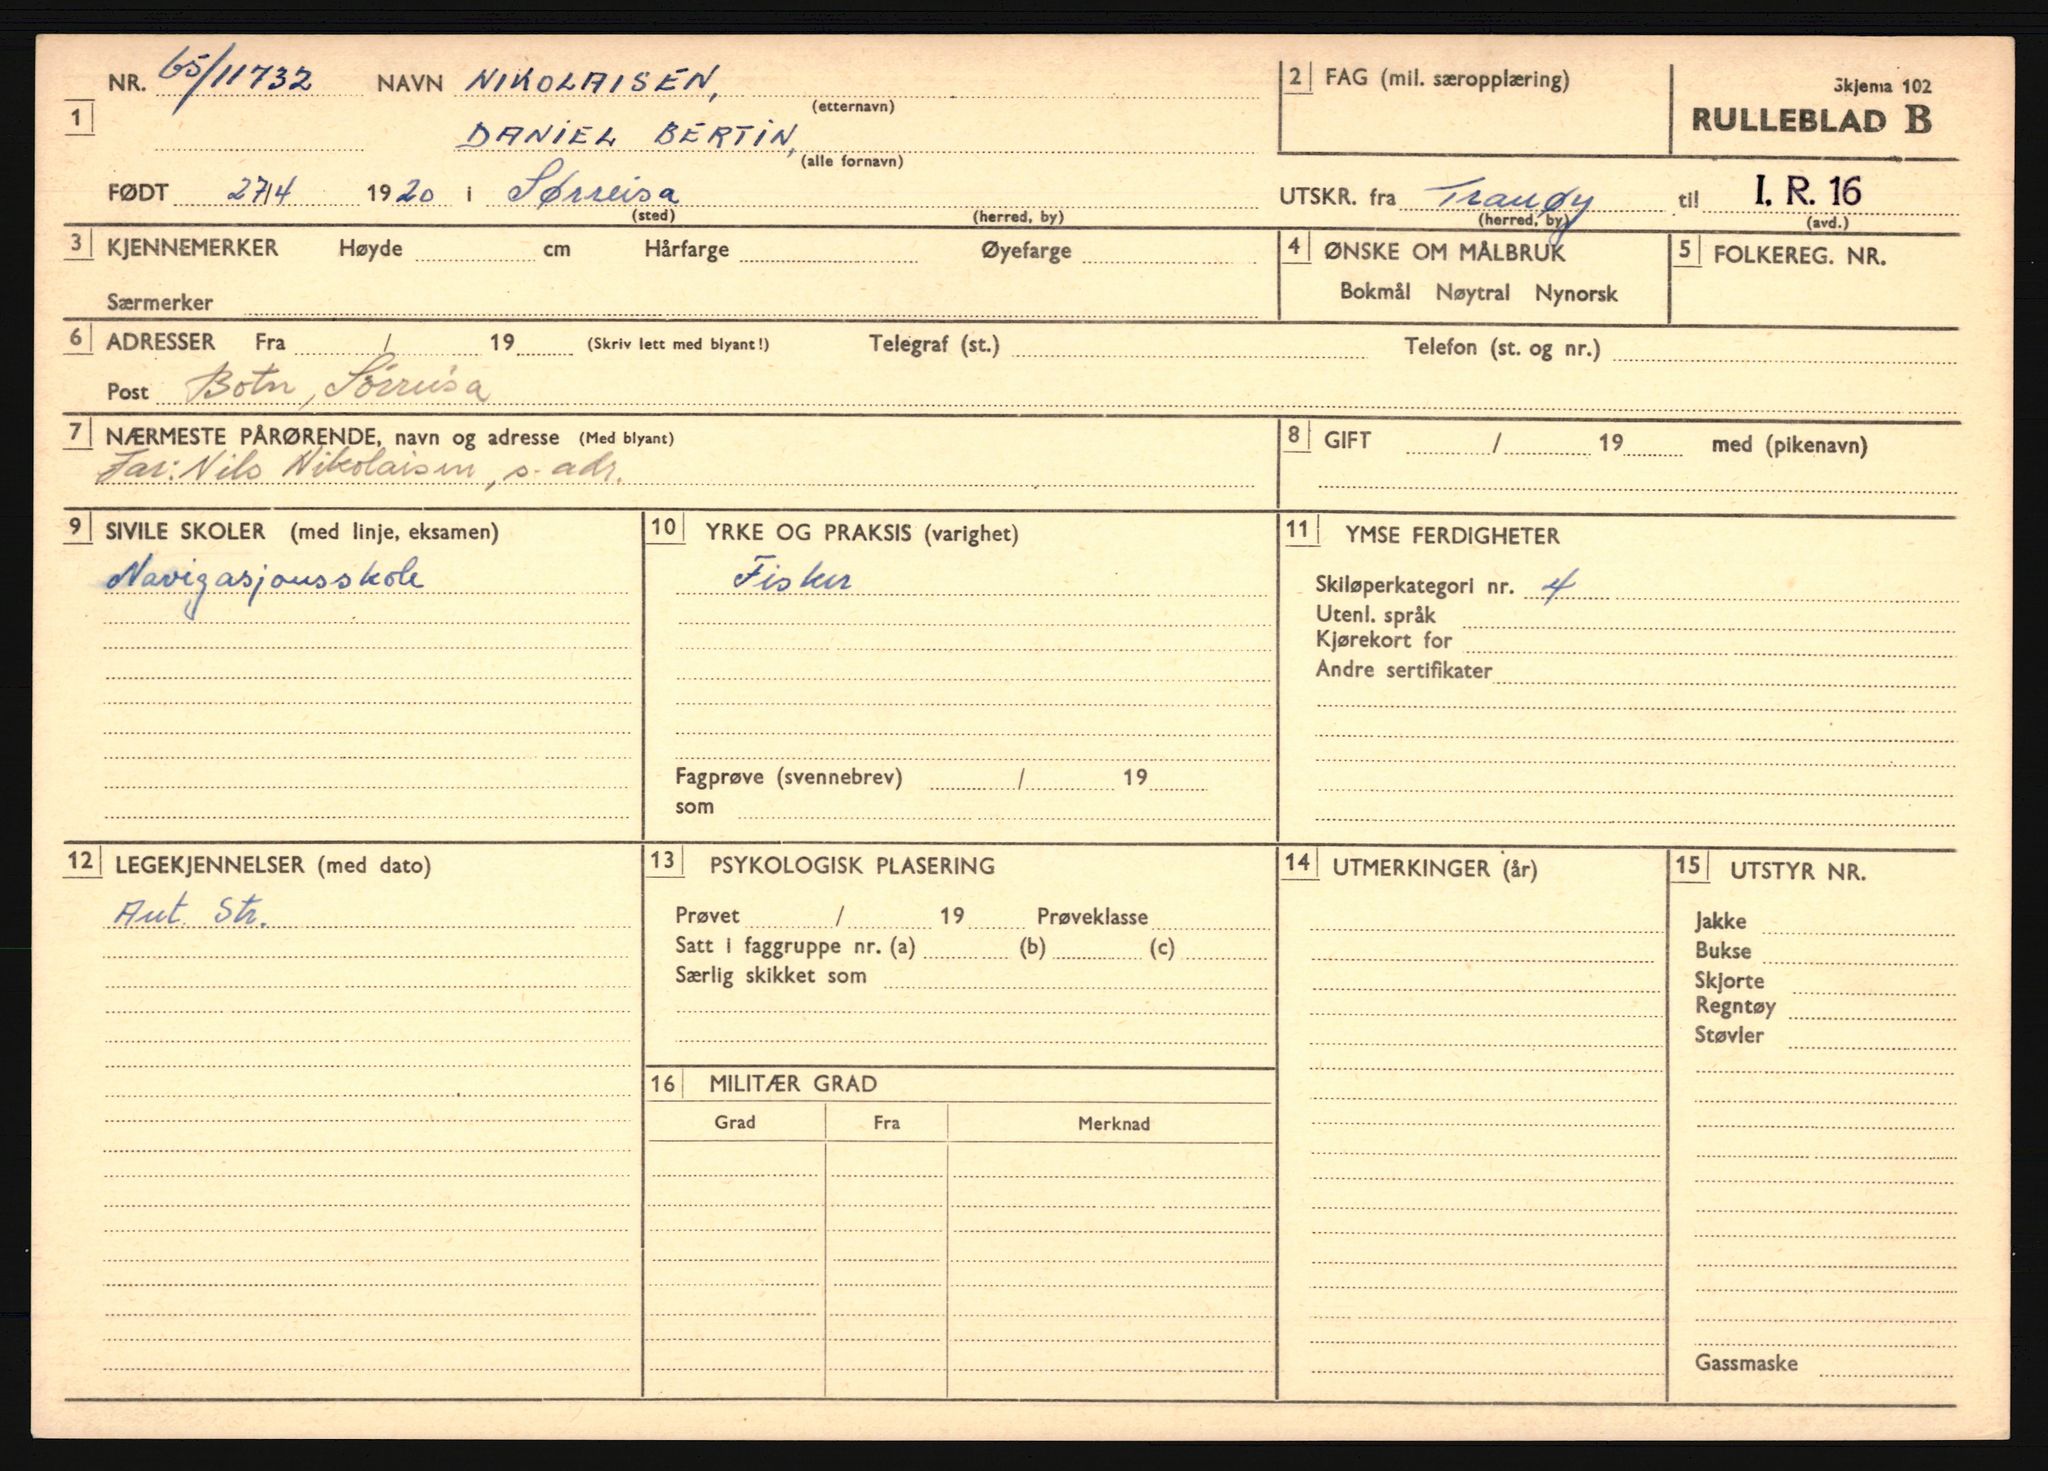 1 NR. 65/11732 NAVN NIKOLAISEN, (etternavn)
DANIEL BERTIN, (alle fornavn)
FØDT 27/4 1920 i Sørreisa (sted) (herred, by)
2 FAG (mil. særopplæring)
Skjema 102
RULLEBLAD B
UTSKR. fra Tranøy (herred, by) til I. R. 16 (avd.)
3 KJENNEMERKER Høyde cm Hårfarge Øyefarge
Særmerker
4 ØNSKE OM MÅLBRUK
Bokmål Nøytral Nynorsk
5 FOLKEREG. NR.
6 ADRESSER Fra / 19 (Skriv lett med blyant!) Telegraf (st.) Telefon (st. og nr.)
Post Botn, Sørreisa
7 NÆRMESTE PÅRØRENDE, navn og adresse (Med blyant)
Far: Nils Nikolaisen, s. adr.
8 GIFT / 19 med (pikenavn)
9 SIVILE SKOLER (med linje, eksamen)
Navigasjonsskole
10 YRKE OG PRAKSIS (varighet)
Fisker
Fagprøve (svennebrev) / 19
som
11 YMSE FERDIGHETER
Skiløperkategori nr. 4
Utenl. språk
Kjørekort for
Andre sertifikater
12 LEGEKJENNELSER (med dato)
Ant. Str.
13 PSYKOLOGISK PLASERING
Prøvet / 19 Prøveklasse
Satt i faggruppe nr. (a) (b) (c)
Særlig skikket som
16 MILITÆR GRAD
Grad Fra Merknad
14 UTMERKINGER (år)
15 UTSTYR NR.
Jakke
Bukse
Skjorte
Regntøy
Støvler
Gassmaske